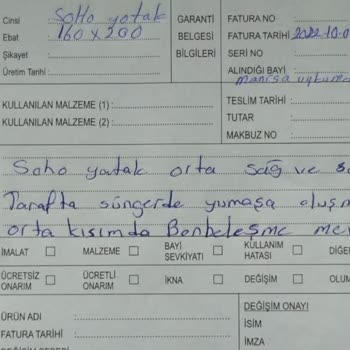 Cinsi : Soho yatak
Ebat : 160 x 200
Şikayet :
Üretim Tarihi :
GARANTİ
BELGESİ
BİLGİLERİ
FATURA NO
FATURA TARİHİ 2022.10.0
SERİ NO
ALINDIĞI BAYİ
manisa
KULLANILAN MALZEME (1) :
KULLANILAN MALZEME (2) :
TESLİM TARİHİ :
TUTAR
MAKBUZ NO
Soho yatak orta sağ ve
Tarafta süngerde yumaşa oluşm
orta kısımda Bonbeleşme
İMALAT
MALZEME
BAYİ SEVKİYATI
KULLANIM HATASI
DİĞE
ÜCRETSİZ ONARIM
ÜCRETLİ ONARIM
İKNA
DEĞİŞİM
OLUM
ÜRÜN ADI :
FATURA TARİHİ :
DEĞİŞİM ONAYI
İSİM
İMZA